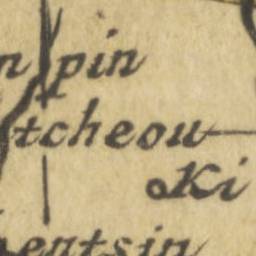 n pin
tcheou
Ki
entsin